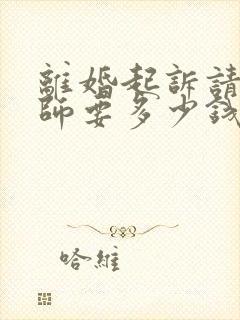 離婚起訴請
師要多少錢
哈維